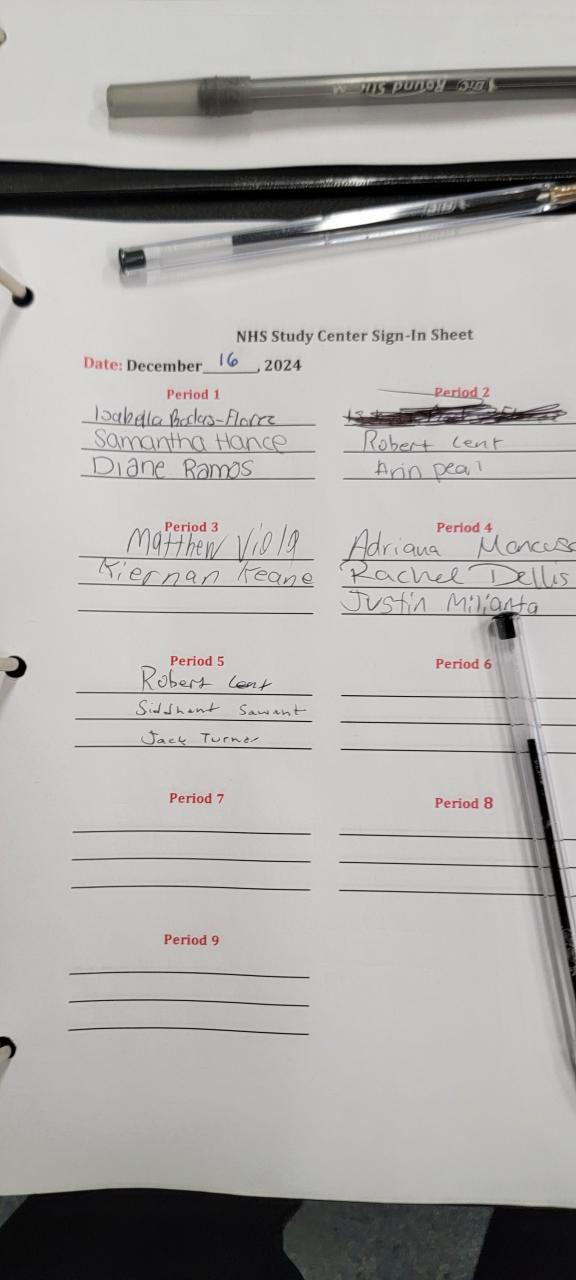 BIC Round Stic M
BIC
NHS Study Center Sign-In Sheet
Date: December 16, 2024
Period 1
Isabella
Samantha Hance
Diane Ramos
Period 2
Robert Lent
Arin peal
Period 3
Matthew Viola
Kiernan Keane
Period 4
Adriana
Rachel Dellis
Justin
Period 5
Robert Lent
Siddhant Sawant
Jack Turner
Period 6
Period 7
Period 8
Period 9